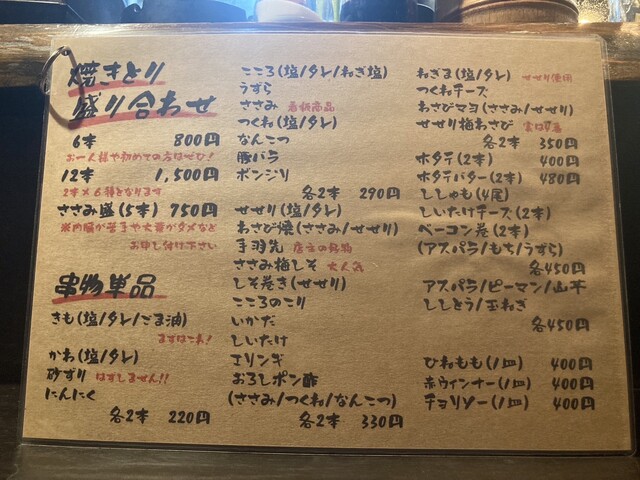 焼きとり
盛り合わせ
6本 800円
お一人様や初めての方はぜひ!
12本 1,500円
2本×6種となります
ささみ盛(5本) 750円
※内臓が苦手や大葉がダメなど
お申し付け下さい
串物単品
きも(塩/タレ/ごま油)
まずはこれ!
かわ(塩/タレ)
砂ずり はずしません!!
にんにく
各2本 220円
こころ(塩/タレ/ねぎ塩)
うずら
ささみ 看板商品
つくね(塩/タレ)
なんこつ
豚バラ
ボンジリ
各2本 290円
せせり(塩/タレ)
わさび焼(ささみ/せせり)
手羽先 店主の名物
ささみ梅しそ 大人気
しそ巻き(せせり)
こころのこり
いかだ
しいたけ
エリンギ
おろしポン酢
(ささみ/つくね/なんこつ)
各2本 330円
ねぎま(塩/タレ) せせり使用
つくねチーズ
わさびマヨ(ささみ/せせり)
せせり梅わさび 実は1番
各2本 350円
ホタテ(2本) 400円
ホタテバター(2本) 480円
ししゃも(4尾)
しいたけチーズ(2本)
ベーコン巻(2本)
(アスパラ/もち/うずら)
各450円
アスパラ/ピーマン/山芋
ししとう/玉ねぎ
各450円
ひねもも(1皿) 400円
赤ウインナー(1皿) 400円
チョリソー(1皿) 400円